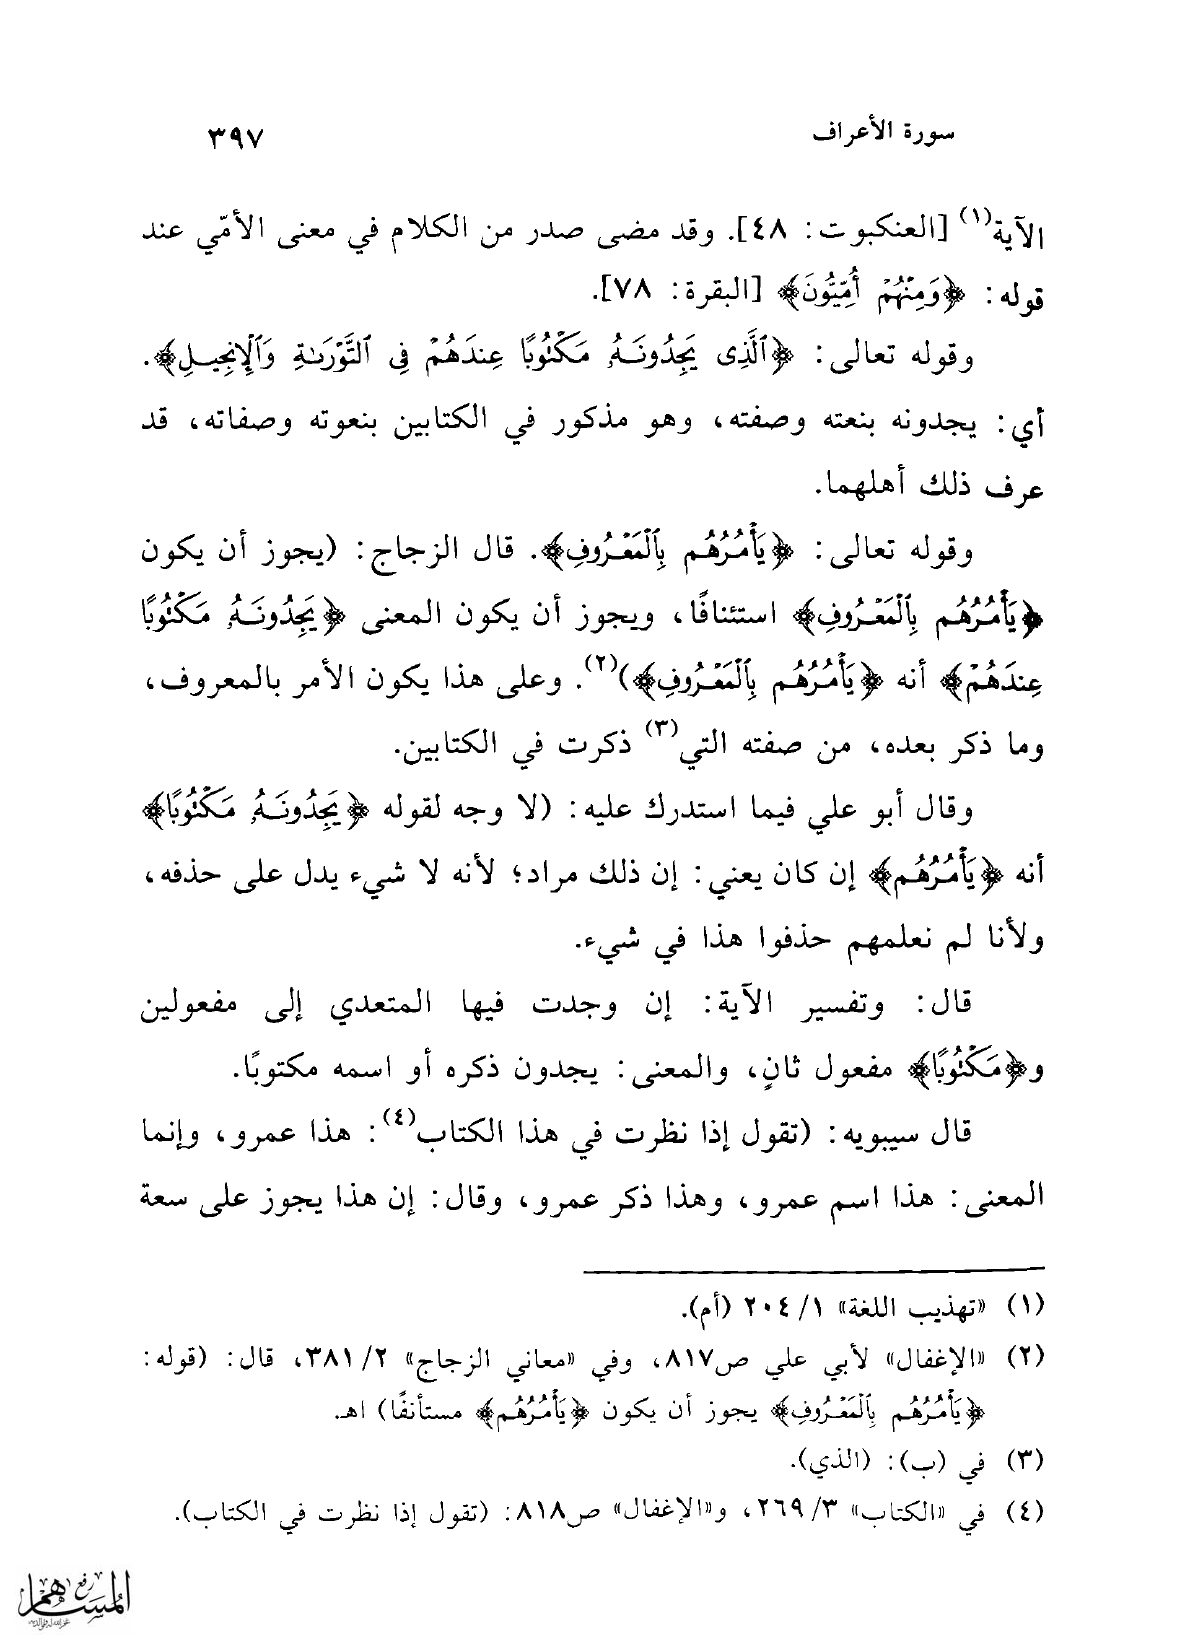 سورة الأعراف ٣٩٧
الآية(١) [العنكبوت: ٤٨]. وقد مضى صدر من الكلام في معنى الأمّي عند
قوله: ﴿وَمِنْهُمْ أُمِّيُّونَ﴾ [البقرة: ٧٨].
وقوله تعالى: ﴿ٱلَّذِى يَجِدُونَهُۥ مَكْتُوبًا عِندَهُمْ فِى ٱلتَّوْرَىٰةِ وَٱلْإِنجِيلِ﴾.
أي: يجدونه بنعته وصفته، وهو مذكور في الكتابين بنعوته وصفاته، قد
عرف ذلك أهلهما.
وقوله تعالى: ﴿يَأْمُرُهُم بِٱلْمَعْرُوفِ﴾. قال الزجاج: (يجوز أن يكون
﴿يَأْمُرُهُم بِٱلْمَعْرُوفِ﴾ استئنافًا، ويجوز أن يكون المعنى ﴿يَجِدُونَهُۥ مَكْتُوبًا
عِندَهُمْ﴾ أنه ﴿يَأْمُرُهُم بِٱلْمَعْرُوفِ﴾)(٢). وعلى هذا يكون الأمر بالمعروف،
وما ذكر بعده، من صفته التي(٣) ذكرت في الكتابين.
وقال أبو علي فيما استدرك عليه: (لا وجه لقوله ﴿يَجِدُونَهُۥ مَكْتُوبًا﴾
أنه ﴿يَأْمُرُهُم﴾ إن كان يعني: إن ذلك مراد؛ لأنه لا شيء يدل على حذفه،
ولأنا لم نعلمهم حذفوا هذا في شيء.
قال: وتفسير الآية: إن وجدت فيها المتعدي إلى مفعولين
و﴿مَكْتُوبًا﴾ مفعول ثانٍ، والمعنى: يجدون ذكره أو اسمه مكتوبًا.
قال سيبويه: (تقول إذا نظرت في هذا الكتاب(٤): هذا عمرو، وإنما
المعنى: هذا اسم عمرو، وهذا ذكر عمرو، وقال: إن هذا يجوز على سعة
(١) «تهذيب اللغة» ١/ ٢٠٤ (أم).
(٢) «الإغفال» لأبي علي ص٨١٧، وفي «معاني الزجاج» ٢/ ٣٨١، قال: (قوله:
﴿يَأْمُرُهُم بِٱلْمَعْرُوفِ﴾ يجوز أن يكون ﴿يَأْمُرُهُم﴾ مستأنفًا) اهـ.
(٣) في (ب): (الذي).
(٤) في «الكتاب» ٣/ ٢٦٩، و«الإغفال» ص٨١٨: (تقول إذا نظرت في الكتاب).
رفع
المساهم